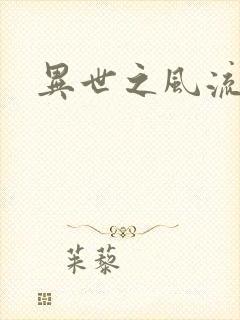 異世之風流
茱藜